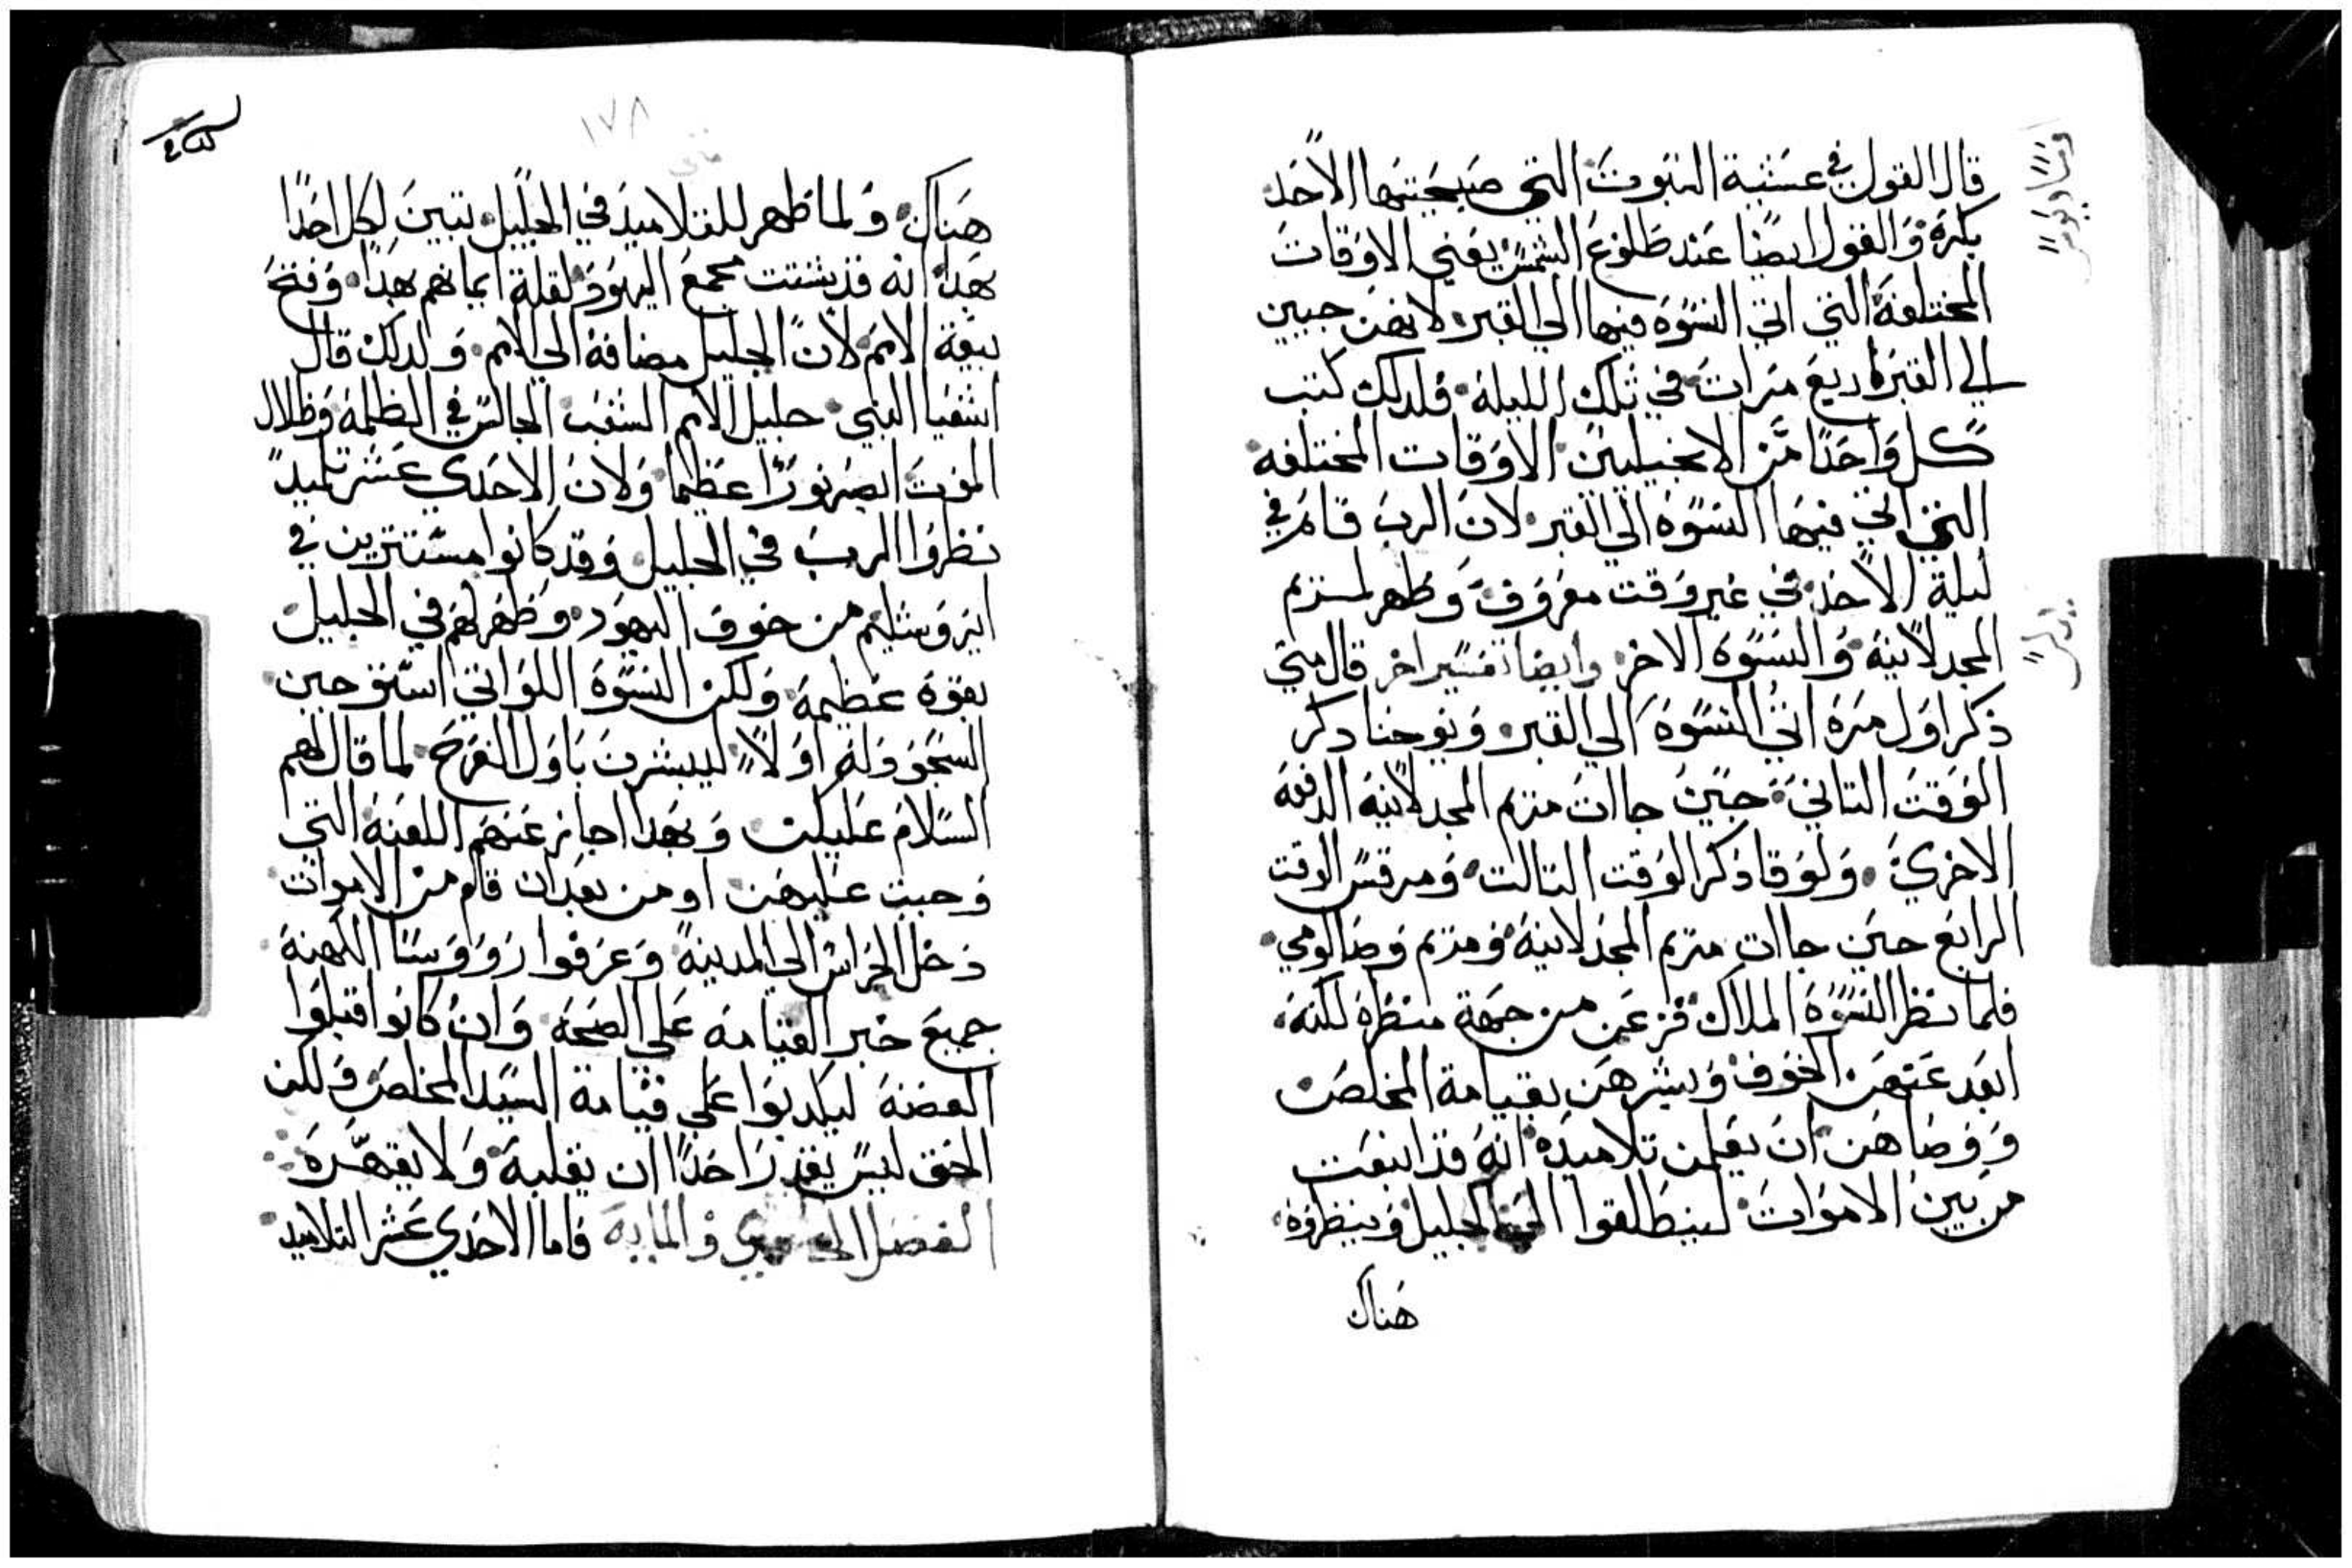 قال القول في عشية السبوت التي صبحيتها الاحد
بكرة والقول ايضا عند طلوع الشمس يعني الاوقات
المختلفة التي اتي النسوة فيها الي القبر لانهن جيين
الي القبر اربع مرات في تلك الليلة فلدلك كتب
كل واحدا من الانجيليين الاوقات المختلفه
التي اتي فيها النسوة الي القبر لان الرب قام في
ليلة الاحد في غير وقت معروف وظهر لمريم
المجدلانية والنسوة الاخر وايضا تفسير اخر قال متي
ذكر اول مرة اتي النسوة الي القبر ويوحنا دكر
الوقت التاني حين جاات مريم المجدلانية الدفعه
الاخري ولوقا دكر الوقت التالت ومرقس الوقت
الرابع حين جاات مريم المجدلانية ومريم وصالومي
فلما نظر النسوة الملاك فزعن من جهة منظره لكنه
ابعد عنهن الخوف وبشرهن بقيامة المخلص
ووصاهن ان يعلمن تلاميده انه قد انبعت
من بين الاموات لينطلقوا الي الجليل وينظروه
هناك
١٧٨
متي
هناك ولما ظهر للتلاميذ في الجليل تبين لكل احدا
هدا انه قد تشتت مجمع اليهود لقلة ايمانهم بهدا وفتح
بيعة الامم لان الجليل مضافة الي الامم ولدلك قال
اشعيا النبي جليل الامم الشعب الجالس في الظلمة وظلال
الموت ابصر نورا عظيما ولان الاحدي عشر تلميدا
نظروا الرب في الجليل وقد كانوا مستترين في
ايروشليم من خوف اليهود وظهر لهم في الجليل
بقوة عظيمة ولكن النسوة اللواتي استحقو حين
السجود له اولا ليبشرن باول الفرح لما قال لهم
السلام عليكن وبهدا اجاز عنهم اللعنة التي
وجبت عليهن ومن بعد ان قام من الاموات
دخل الحراس الي المدينة وعرفوا رووسا الكهنة
جميع خبر القيامة علي الصحة وان كانوا قبلوا
الفضة ليكدبوا علي قيامة السيد المخلص ولكن
الحق ليس يقدر احدا ان يغلبه ولا يقهره
الفصل والمايه فاما الاحدي عشر التلاميد